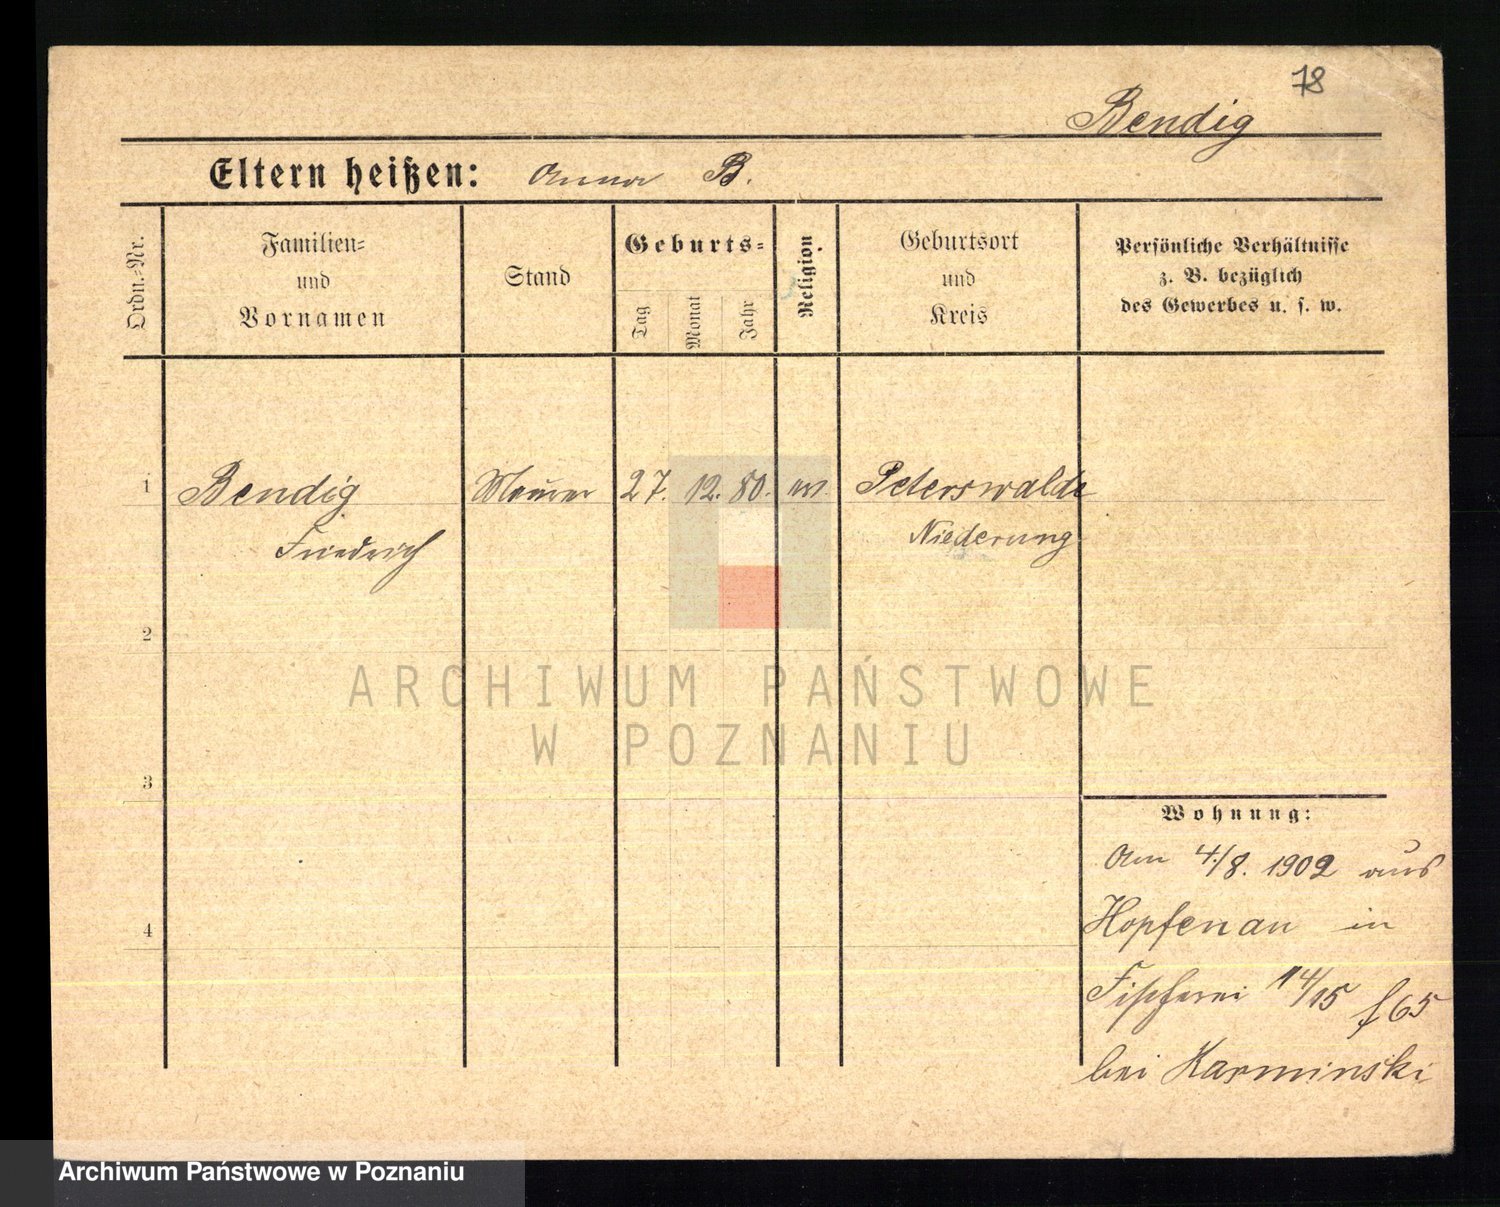 78
Bendig
Eltern heißen: Anna B.
Ordn.-Nr.
Familien-
und
Vornamen
Stand
Geburts-
Tag
Monat
Jahr
Religion.
Geburtsort
und
Kreis
Persönliche Verhältnisse
z. B. bezüglich
des Gewerbes u. s. w.
1 Bendig Maurer 27. 12. 80. ev. Peterswalde
Friedrich Niederung
2
3
4
Wohnung:
Am 4./8. 1902 aus
Hopfenau in
Fischerei 14/15 f 65
bei Karminski
ARCHIWUM PAŃSTWOWE
W POZNANIU
Archiwum Państwowe w Poznaniu